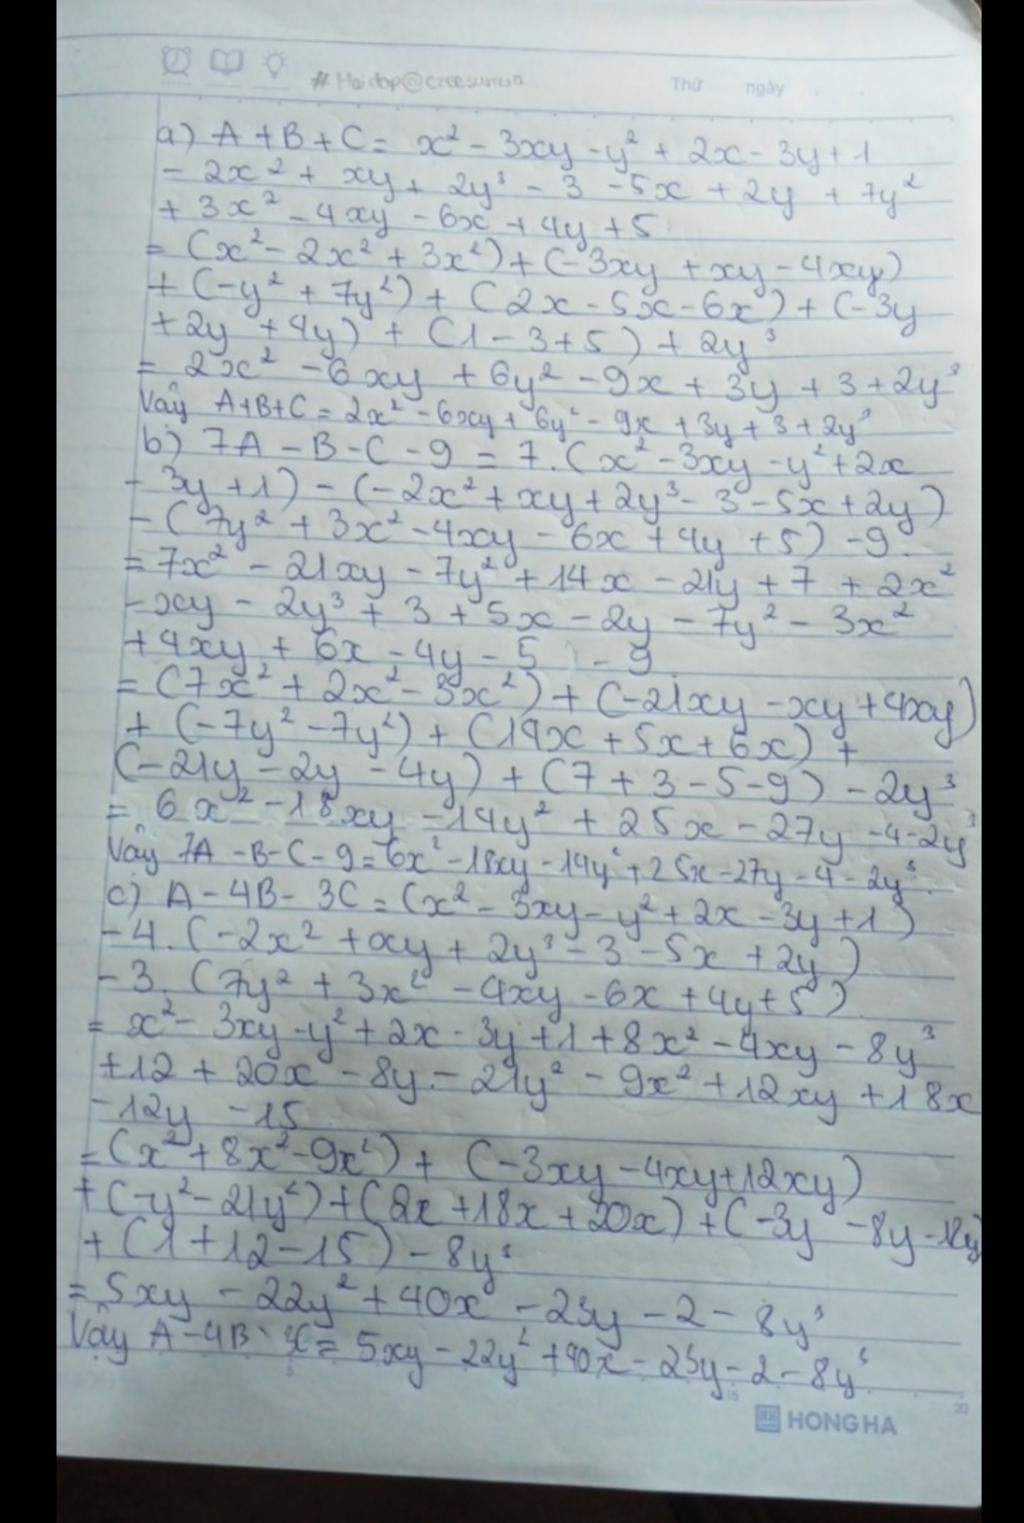 #Hoidap@czeesuncia
Thứ ngày
a) A+B+C = x² - 3xy - y² + 2x - 3y + 1
- 2x² + xy + 2y³ - 3 - 5x + 2y + 7y²
+ 3x² - 4xy - 6x + 4y + 5
= (x² - 2x² + 3x²) + (-3xy + xy - 4xy)
+ (-y² + 7y²) + (2x - 5x - 6x) + (-3y
+ 2y + 4y) + (1 - 3 + 5) + 2y³
= 2x² - 6xy + 6y² - 9x + 3y + 3 + 2y³
Vậy A+B+C = 2x² - 6xy + 6y² - 9x + 3y + 3 + 2y³
b) 7A - B - C - 9 = 7.(x² - 3xy - y² + 2x
- 3y + 1) - (-2x² + xy + 2y³ - 3 - 5x + 2y)
- (7y² + 3x² - 4xy - 6x + 4y + 5) - 9
= 7x² - 21xy - 7y² + 14x - 21y + 7 + 2x²
- xy - 2y³ + 3 + 5x - 2y - 7y² - 3x²
+ 4xy + 6x - 4y - 5 - 9
= (7x² + 2x² - 3x²) + (-21xy - xy + 4xy)
+ (-7y² - 7y²) + (14x + 5x + 6x) +
(-21y - 2y - 4y) + (7 + 3 - 5 - 9) - 2y³
= 6x² - 18xy - 14y² + 25x - 27y - 4 - 2y³
Vậy 7A - B - C - 9 = 6x² - 18xy - 14y² + 25x - 27y - 4 - 2y³.
c) A - 4B - 3C = (x² - 3xy - y² + 2x - 3y + 1)
- 4.(-2x² + xy + 2y³ - 3 - 5x + 2y)
- 3.(7y² + 3x² - 4xy - 6x + 4y + 5)
= x² - 3xy - y² + 2x - 3y + 1 + 8x² - 4xy - 8y³
+ 12 + 20x - 8y - 21y² - 9x² + 12xy + 18x
- 12y - 15
= (x² + 8x² - 9x²) + (-3xy - 4xy + 12xy)
+ (-y² - 21y²) + (2x + 18x + 20x) + (-3y - 8y - 12y)
+ (1 + 12 - 15) - 8y³
= 5xy - 22y² + 40x - 23y - 2 - 8y³
Vậy A - 4B - 3C = 5xy - 22y² + 40x - 23y - 2 - 8y³
HONG HA